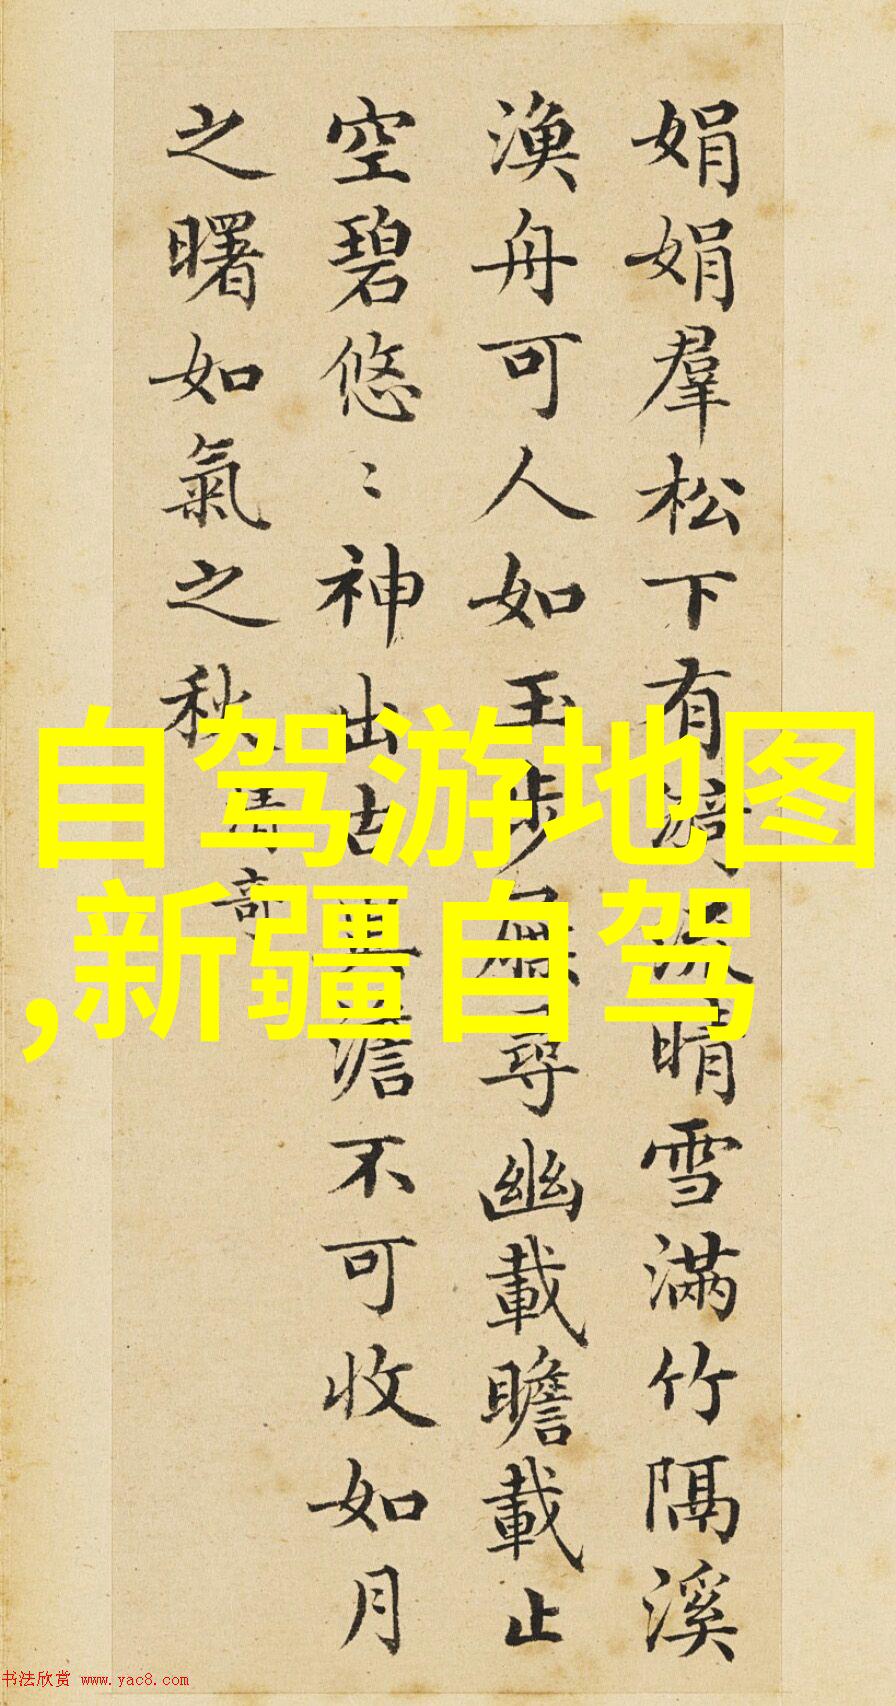 娟娟羣松下有漪流晴雪滿竹隔溪
漁舟可人如玉步屧尋幽載瞻載止
空碧悠〻神出古異澹不可收如月
之曙如氣之秋
清奇
自驾游地图
,新疆自驾
书法欣赏 www.yac8.com